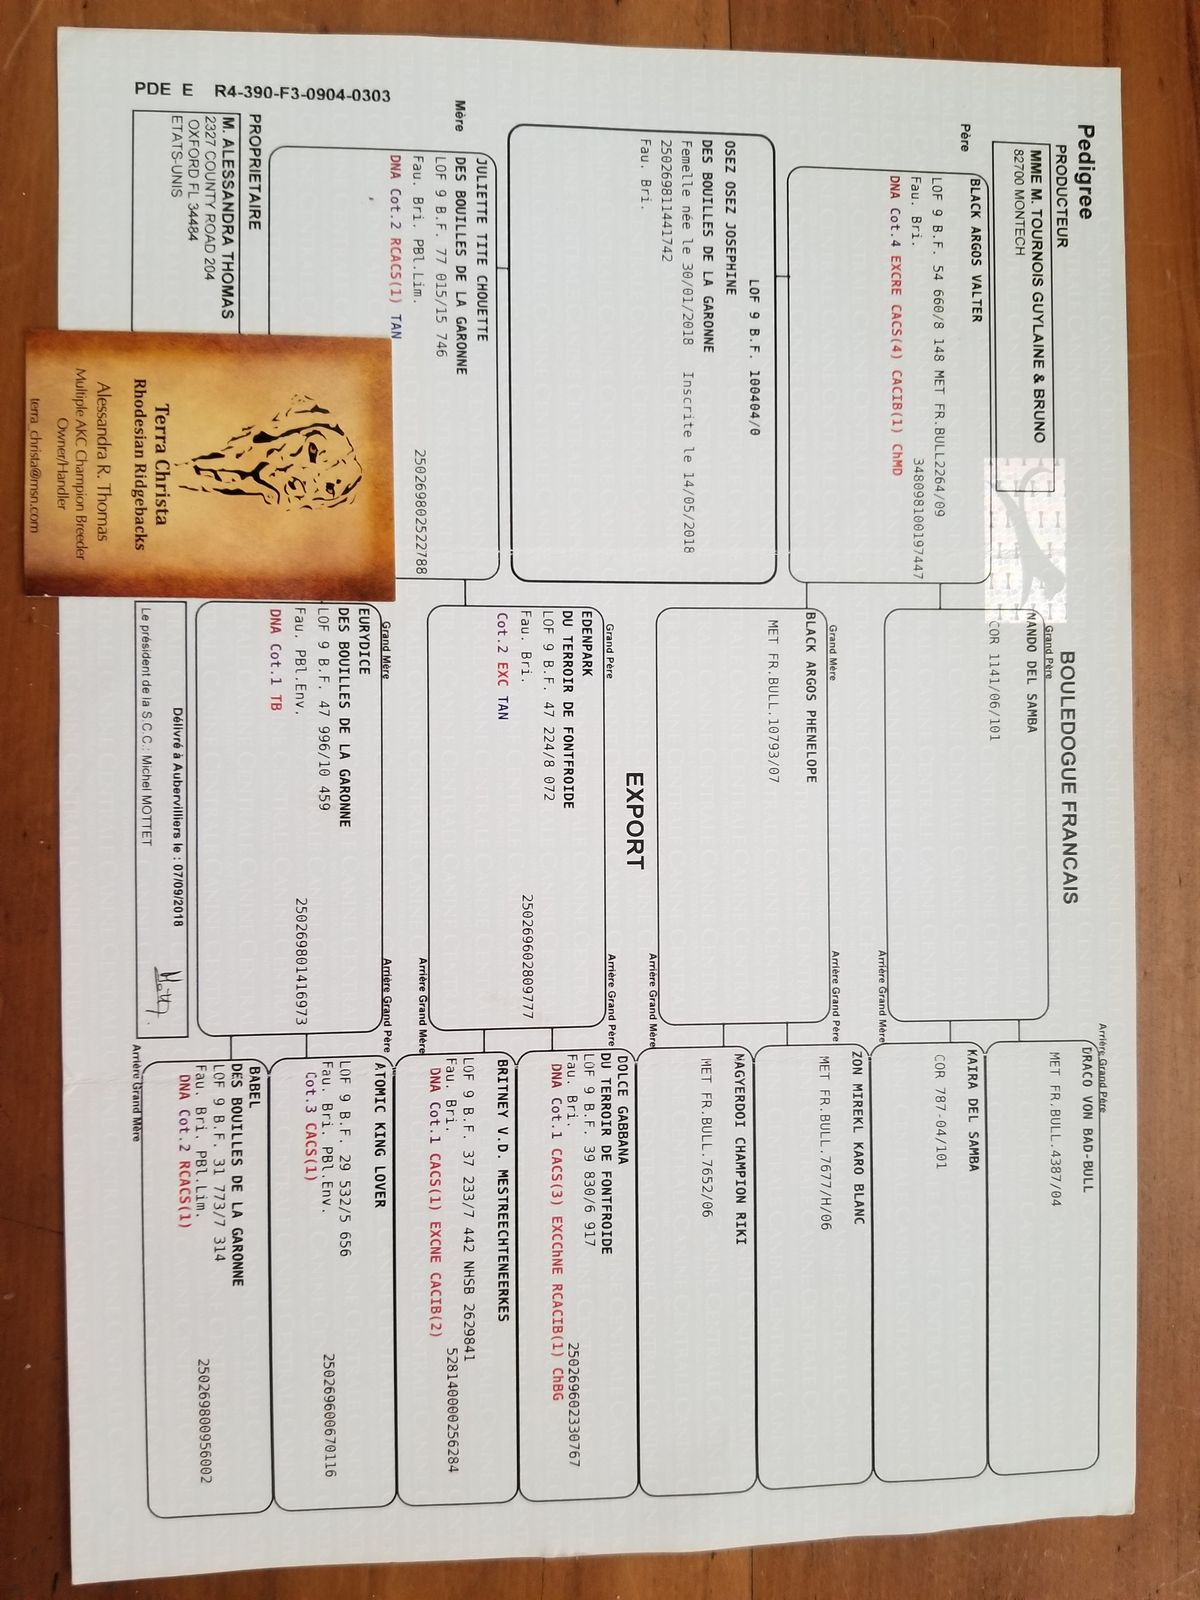 Pedigree
BOULEDOGUE FRANCAIS
PRODUCTEUR
MME M. TOURNOIS GUYLAINE & BRUNO
82700 MONTECH
Père
BLACK ARGOS VALTER
LOF 9 B.F. 54 660/8 148 MET FR.BULL2264/09
Fau. Bri. 348098100197447
DNA Cot.4 EXCRE CACS(4) CACIB(1) ChMD
LOF 9 B.F. 100404/0
OSEZ OSEZ JOSEPHINE
DES BOUILLES DE LA GARONNE
Femelle née le 30/01/2018 Inscrite le 14/05/2018
250269811441742
Fau. Bri.
Mère
JULIETTE TITE CHOUETTE
DES BOUILLES DE LA GARONNE
LOF 9 B.F. 77 015/15 746
Fau. Bri. PBl.Lim. 250269802522788
DNA Cot.2 RCACS(1) TAN
PROPRIETAIRE
M. ALESSANDRA THOMAS
2327 COUNTY ROAD 204
OXFORD FL 34484
ETATS-UNIS
PDE E R4-390-F3-0904-0303
Terra Christa
Rhodesian Ridgebacks
Alessandra R. Thomas
Multiple AKC Champion Breeder
Owner/Handler
terra_christa@msn.com
Grand Père
NANDO DEL SAMBA
COR 1141/06/101
Grand Mère
BLACK ARGOS PHENELOPE
MET FR.BULL.10793/07
EXPORT
Grand Père
EDENPARK
DU TERROIR DE FONTFROIDE
LOF 9 B.F. 47 224/8 072
Fau. Bri. 250269602809777
Cot.2 EXC TAN
Grand Mère
EURYDICE
DES BOUILLES DE LA GARONNE
LOF 9 B.F. 47 996/10 459
Fau. PBl.Env. 250269801416973
DNA Cot.1 TB
Délivré à Aubervilliers le : 07/09/2018
Le président de la S.C.C.: Michel MOTTET
Arrière Grand Père
DRACO VON BAD-BULL
MET FR.BULL.4387/04
Arrière Grand Mère
KAIRA DEL SAMBA
COR 787-04/101
Arrière Grand Père
ZON MIREKL KARO BLANC
MET FR.BULL.7677/H/06
Arrière Grand Mère
NAGYERDOI CHAMPION RIKI
MET FR.BULL.7652/06
Arrière Grand Père
DOLCE GABBANA
DU TERROIR DE FONTFROIDE
LOF 9 B.F. 39 830/6 917
Fau. Bri. 250269602330767
DNA Cot.1 CACS(3) EXCChNE RCACIB(1) ChBG
Arrière Grand Mère
BRITNEY V.D. MESTREECHTENEERKES
LOF 9 B.F. 37 233/7 442 NHSB 2629841
Fau. Bri. 528140000256284
DNA Cot.1 CACS(1) EXCNE CACIB(2)
Arrière Grand Père
ATOMIC KING LOVER
LOF 9 B.F. 29 532/5 656
Fau. Bri. PBl.Env. 250269600670116
Cot.3 CACS(1)
Arrière Grand Mère
BABEL
DES BOUILLES DE LA GARONNE
LOF 9 B.F. 31 773/7 314
Fau. Bri. PBl.Lim. 250269800956002
DNA Cot.2 RCACS(1)